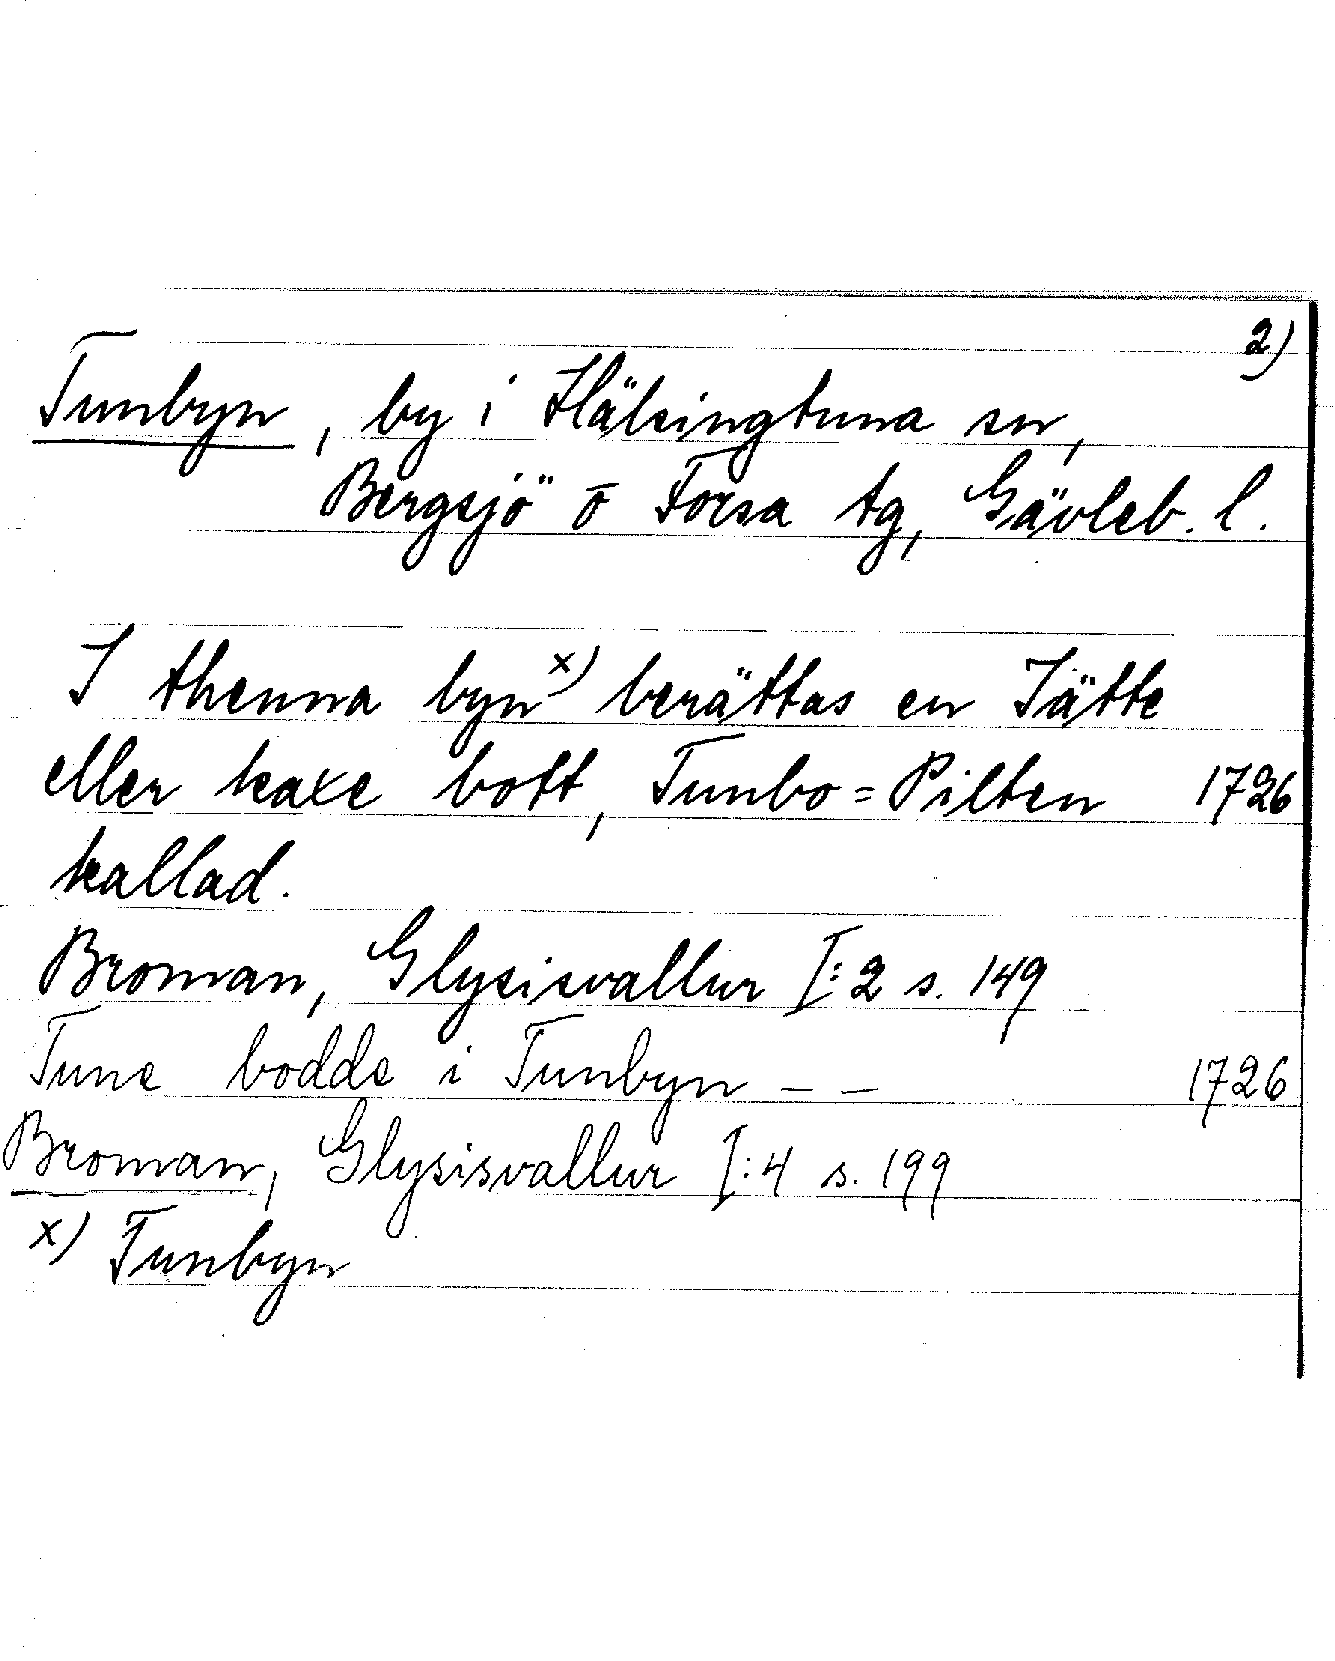 2)
Tunbyn, by i Hälsingtuna sn,
Bergsjö o Forsa tg, Gävleb. l.
I thenna byn x) berättas en Jätte
eller kaxe bott, Tunbo=Pilten 1726
kallad.
Broman, Glysisvallur I:2 s. 149
Tune bodde i Tunbyn – – 1726
Broman, Glysisvallur I:4 s. 199
x) Tunbyn